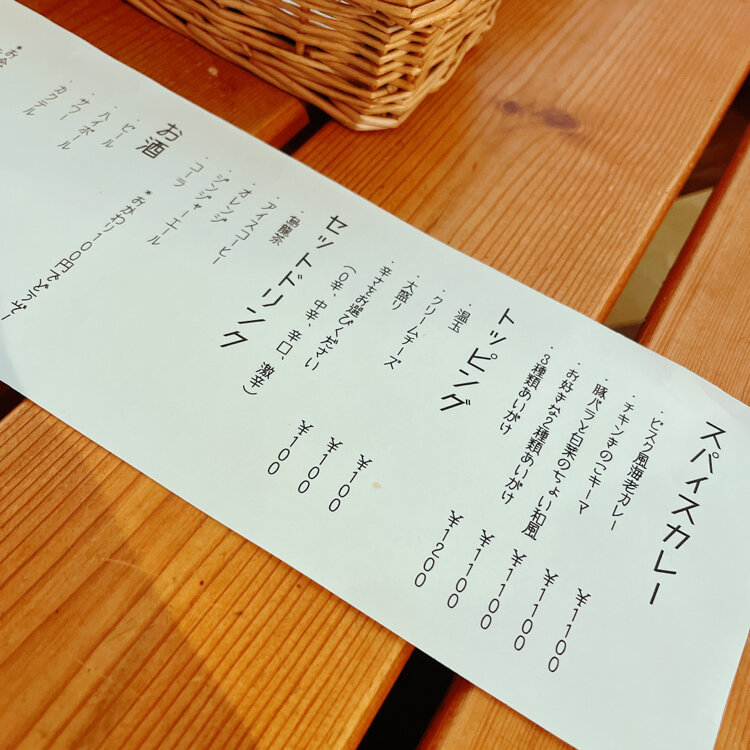 スパイスカレー
・ビスク風海老カレー ¥1100
・チキンきのこキーマ ¥1100
・豚バラと白菜のちょい和風 ¥1100
・お好きな2種類あいがけ ¥1100
・3種類あいがけ ¥1200
トッピング
・温玉 ¥100
・クリームチーズ ¥100
・大盛り ¥100
・辛さをお選びください
(0辛、中辛、辛口、激辛)
セットドリンク
・烏龍茶
・アイスコーヒー
・オレンジ
・ジンジャーエール
・コーラ
*おかわり100円でどうぞー
お酒
・ビール
・ハイボール
・サワー
・カクテル
*お